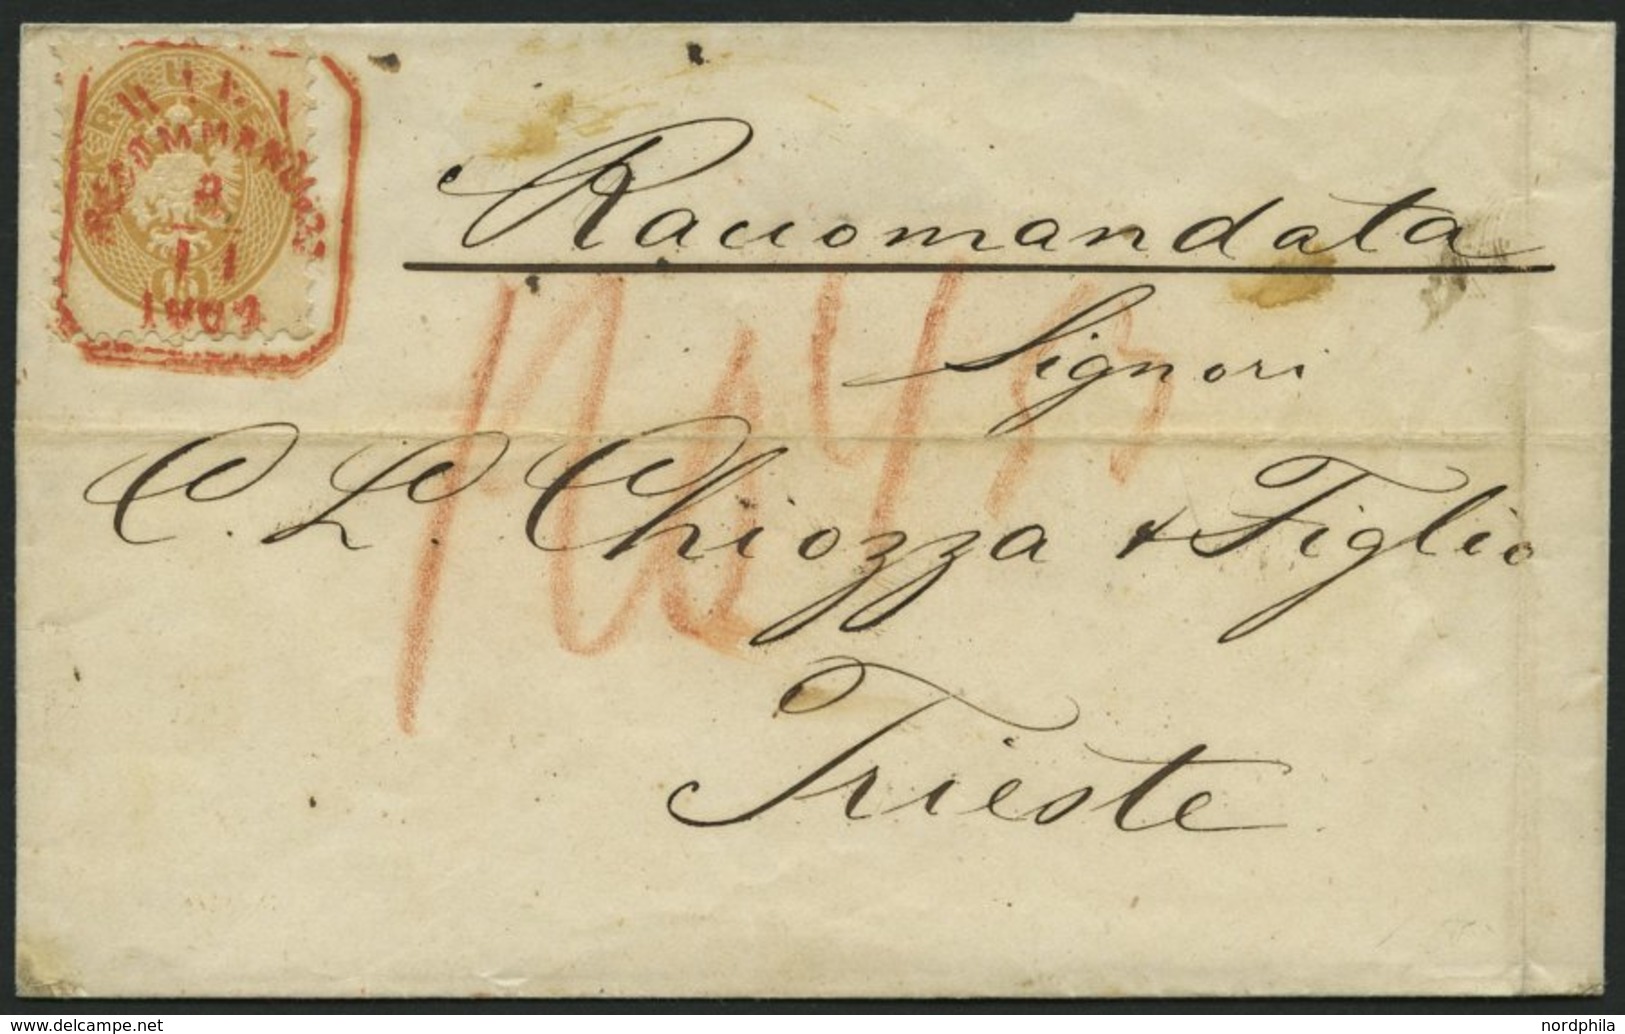 RECOMMANDIRT
15
Raccomandata
Signori
C. L. Chiozza & Figlio
Trieste
delcampe.net
nordphila